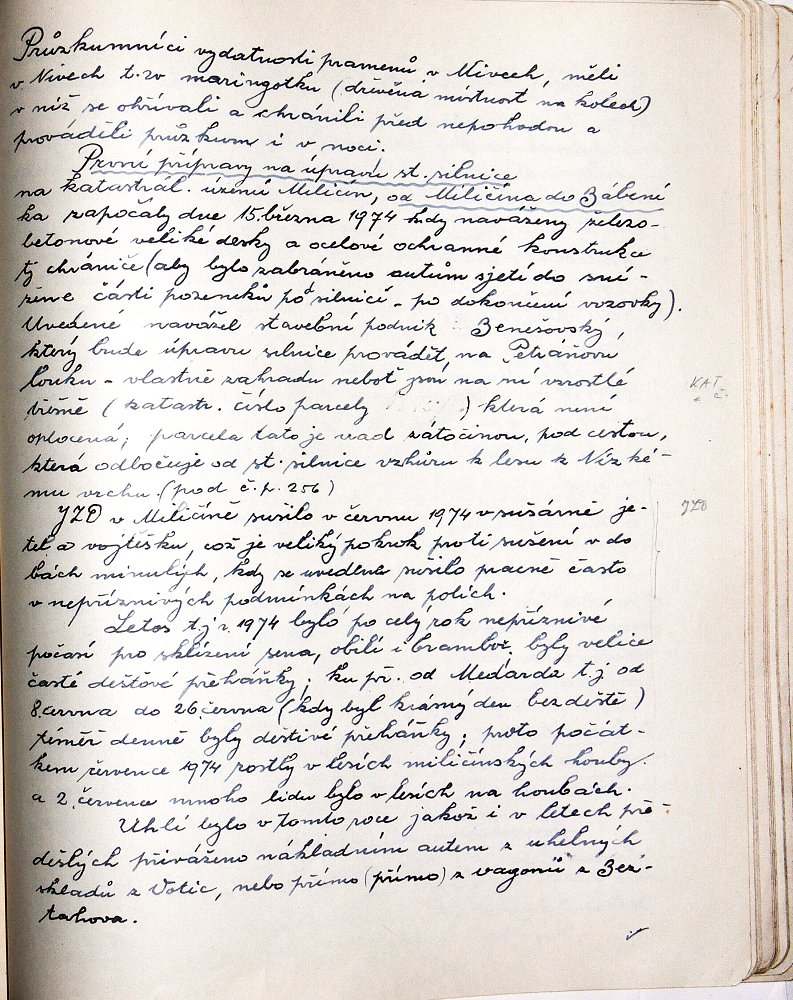 Průzkumníci vydatnosti pramenů v Nivech, měli
v Nivech t.zv maringotku (dřevěná místnost na kolech)
v níž se ohřívali a chránili před nepohodou a
prováděli průzkum i v noci.
První přípravy na úpravu st. silnice
na katastrál. území Miličín, od Miličína do Zábení
ka započaly dne 15. března 1974 kdy naváženy železo-
betonové veliké desky a ocelové ochranné konstrukce
tj chrániče (aby bylo zabráněno autům sjetí do sní-
žené části pozemků pod silnicí - po dokončení vozovky).
Uvedené navážel stavební podnik Benešovský,
který bude úpravu silnice provádět, na Petráňovu
louku - vlastně zahradu neboť jsou na ní vzrostlé
třešně (katastr. číslo parcely ) která není
oplocená; parcela tato je nad zátočinou, pod cestou,
která odbočuje od st. silnice vzhůru k lesu k Nízké-
mu vrchu. (pod č.p. 256)
KAT
č.
JZD v Miličíně sušilo v červnu 1974 v sušárně je-
tel a vojtěšku, což je veliký pokrok proti sušení v do
bách minulých, kdy se uvedené sušilo pracně často
v nepříznivých podmínkách na polích.
JZD
Letos t.j r. 1974 bylo po celý rok nepříznivé
počasí pro sklízení sena, obilí i brambor. byly velice
časté dešťové přeháňky; ku př. od Medarda t.j od
8. června do 26. června (kdy byl krásný den bez deště)
téměř denně byly deštivé přeháňky; proto počát-
kem července 1974 rostly v lesích miličínských houby.
a 2. července mnoho lidu bylo v lesích na houbách.
Uhlí bylo v tomto roce jakož i v letech pře-
dešlých přiváženo nákladním autem z uhelných
skladů z Votic, nebo přímo (přímo) z wagonů z Bez-
tahova.